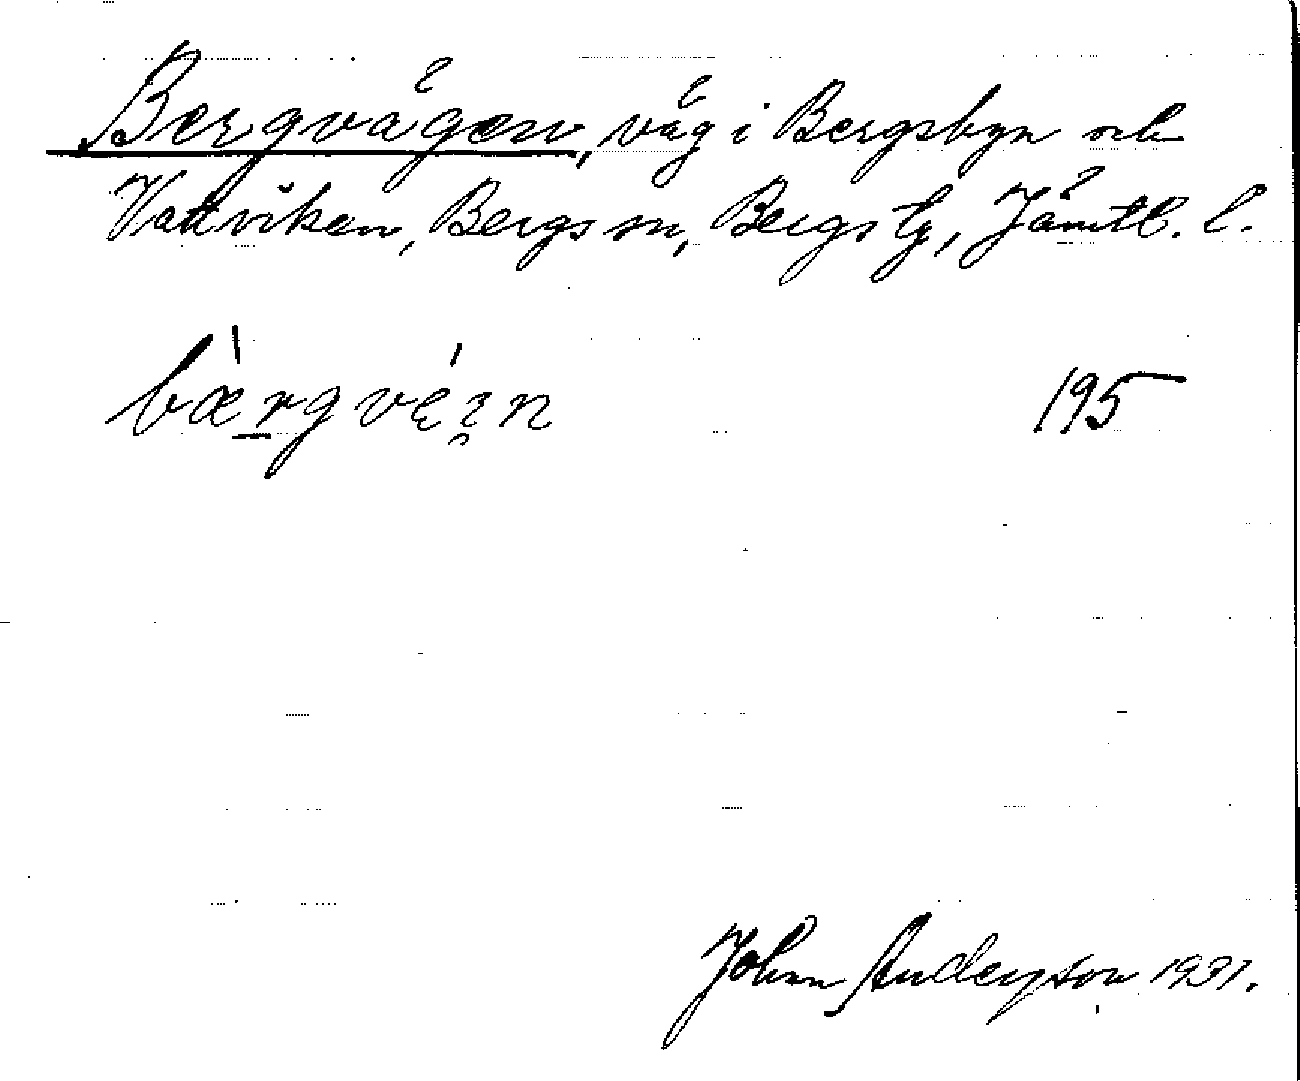 Bergvägen, väg i Bergsbyn och
Hattviken, Bergs sn, Bergs tg, Jämtl. l.
bærgvęɪn 195
Johan Anderson 1931.